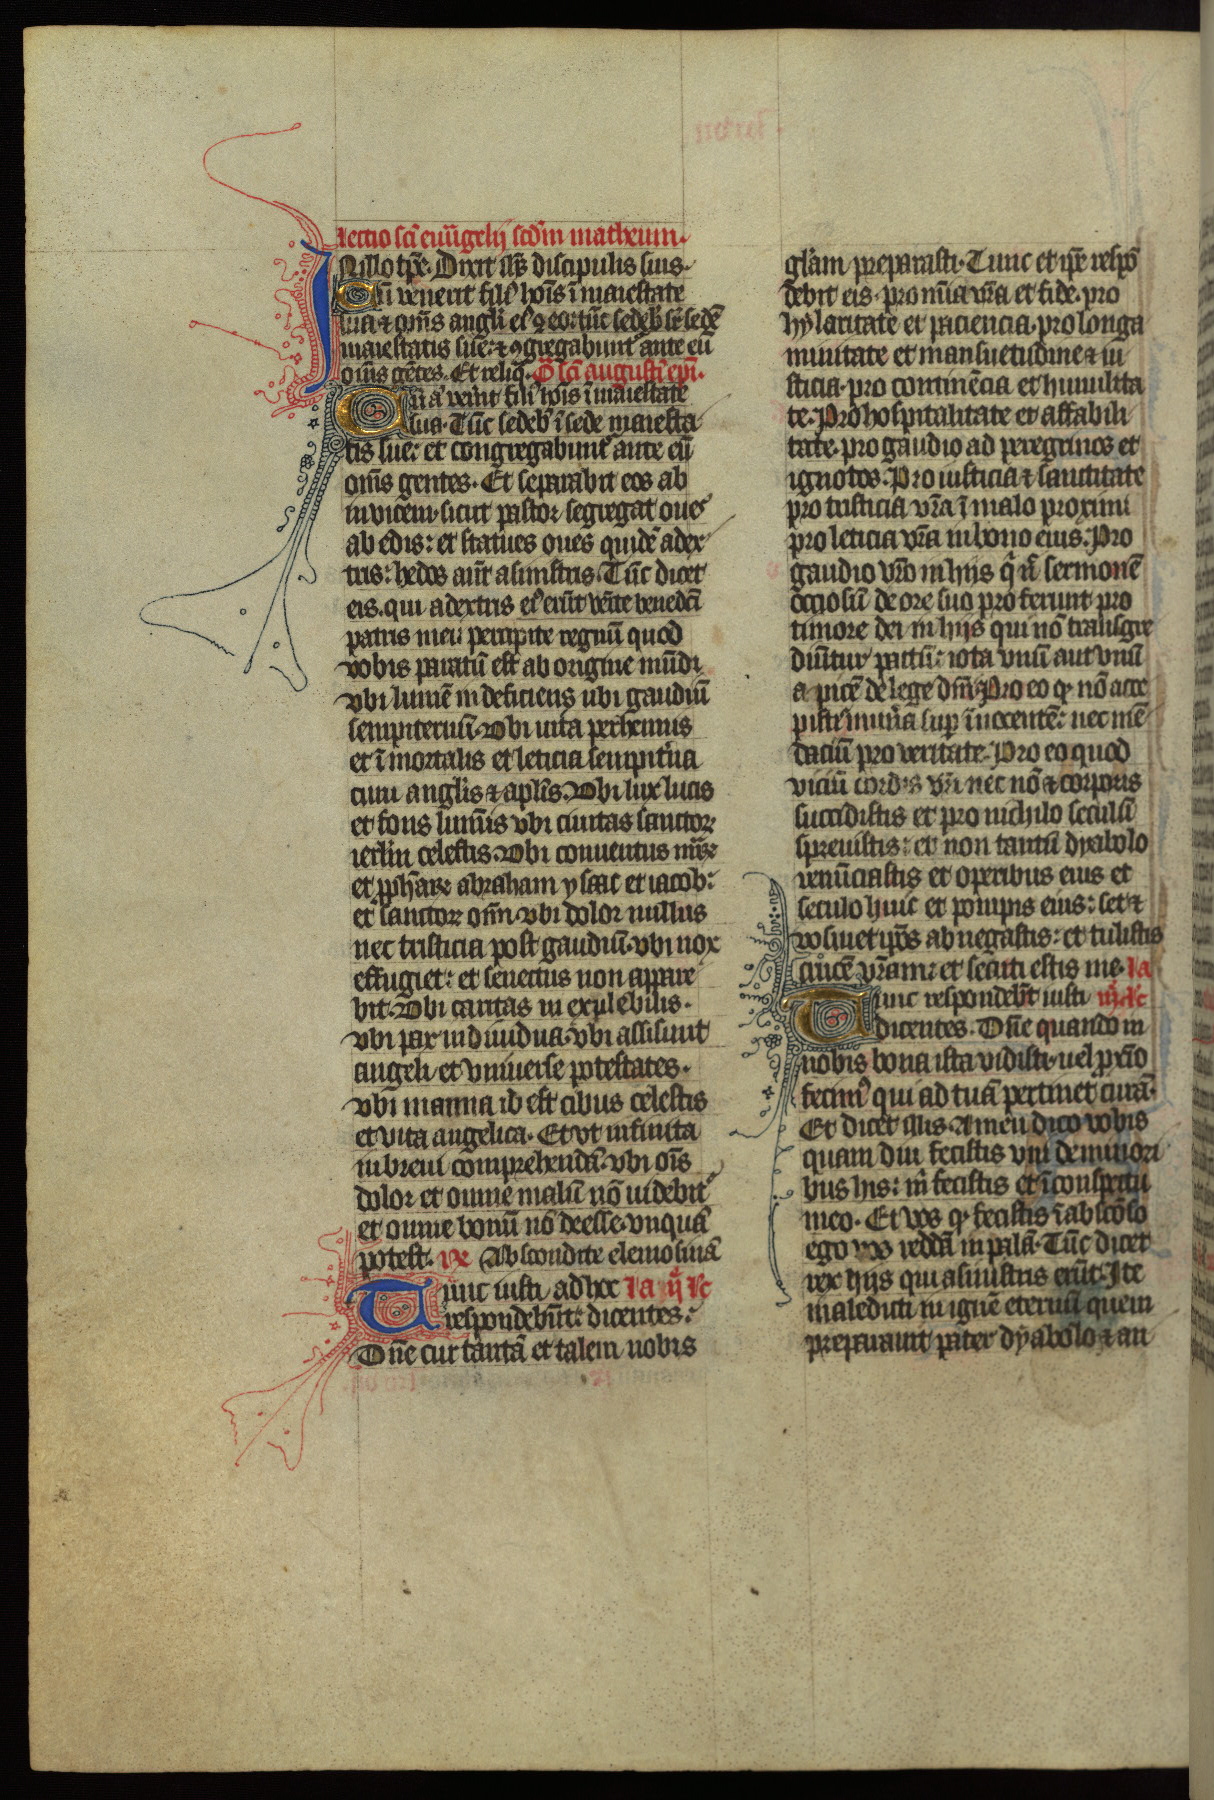 lectio sc̄i euu̅gelij scd̅m matheum.
IN illo tp̄e. Dixit ih̄s discipulis suis.
Cū venerit fili9 hoīs ī maiestate
sua ⁊ om̄s angl̄i ei9 ꝯ eo: tūc sedeb̄ sr̄ sedē
maiestatis sue: ⁊ ꝯgregabunt᷑ ante eū
om̄s gētes. Et reliq̄. Om̄ sc̄i augusti ep̄i.
Cū aut̄ ven̄it fili9 hoīs ī maiestate
sua. Tūc sedeb̄ ī sede maiesta
tis sue: et congregabunt᷑ ante eū
om̄s gentes. Et separabit eos ab
invicem. sicut pastor segregat oues
ab edis: et statues oues quidē adex
tris: hedos aūt asinistris. Tūc dicet
eis. qui adextris ei9 erūt ven̄ite benedc̄i
patris mei percipite regnū quod
vobis paratū est ab origine mūdi
vbi lumē indeficiens ubi gaudiū
sempiternū. Vbi uita perhennis
et ī mortalis et leticia sempit̄na
cum angl̄is ⁊ apl̄is. Vbi lux lucis
et fons lumīs vbi ciuitas sanctoꝝ
ierl̄m celestis. Vbi conuentus mr̄m
et ꝓph̄arꝝ abraham ysaac et iacob:
et sanctoꝝ om̄. vbi dolor nullus
nec tristicia post gaudiū. vbi nox
effugiet: et senectus non appare
bit. Vbi caritas in explebilis.
vbi pax indiuidua. vbi assisunt
angeli et vniuerse potestates.
vbi manna id est cibus celestis
et vita angelica. Et vt infinita
in breui comprehendā. vbi oīs
dolor et omne malū nō uidebit᷑
et omne bonū nō deesse. vnquā
potest. ꝶ Abscondite elemosinā
Tunc iusti adhec la ij lc
respondebūt: dicentes:
Dn̄e cur tantā et talem nobis
gl̄iam preparasti. Tunc et ip̄e respō
debit eis. pro mīa vr̄a et fide. pro
hylaritate et paciencia. pro longa
mitate et mansuetudine ⁊ iu
sticia. pro continēcia et humilita
te. Pro hospitalitate et affabili
tate. pro gaudio ad peregrinos et
ignotos. Pro iusticia ⁊ sanctitate
pro tristicia vr̄a ī malo proximi
pro leticia vr̄a in bono eius. Pro
gaudio v̄ro in hijs q̄ n̄ sermonē
occiosū de ore suo proferunt pro
timore dei in hijs qui nō transgre
diūtur pactū: iota vnū aut vnū
apicē de lege dn̄i. Pro eo qꝫ nō acce
pistis mun̄a sup̄ ī nocentē: nec mē
daciū pro veritate. Pro eo quod
viciū cordis vr̄i nec nō ⁊ corporis
succidistis et pro nichilo seculū
spreuistis: et non tantū dyabolo
renūciastis et operibus eius et
seculo huic et pompis eius: set ⁊
vosmet ip̄os abnegastis: et tulistis
crucē vr̄am: et secuti estis me. la
Tunc respondebūt iusti iij lc
dicentes. Dn̄e quando in
nobis bona ista vidisti. uel
fecim9 qui ad tuā pertinet curā.
Et dicet illis. Amen dico vobis
quam diu fecistis vni de minori
bus his: m̄ fecistis et ī conspectu
meo. Et vos qꝫ fecistis ī abscōso
ego vos reddā in palā. Tūc dicet
rex hijs qui asinistris erūt. Ite
maledicti in ignē eternū quem
preparauit pater dyabolo ⁊ an